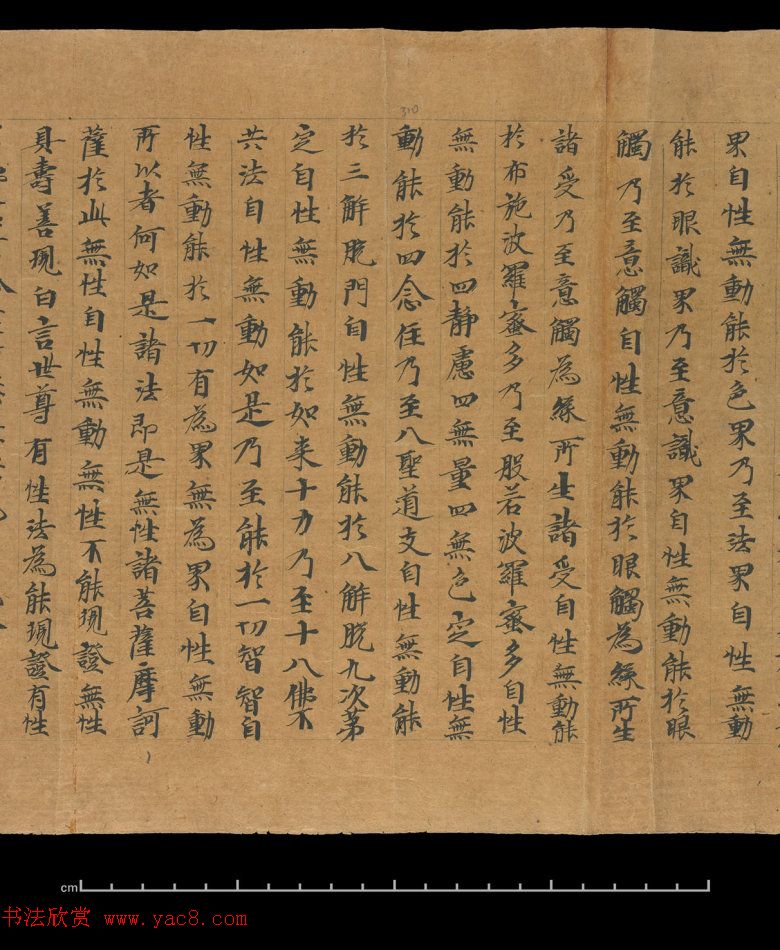 界自性無動能於色界乃至法界自性無動
能於眼識界乃至意識界自性無動能於眼
觸乃至意觸自性無動能於眼觸為緣所生
諸受乃至意觸為緣所生諸受自性無動能
於布施波羅蜜多乃至般若波羅蜜多自性
無動能於四靜慮四無量四無色定自性無
動能於四念住乃至八聖道支自性無動能
於三解脫門自性無動能於八解脫九次第
定自性無動能於如来十力乃至十八佛不
共法自性無動如是乃至能於一切智智自
性無動能於一切有為界無為界自性無動
所以者何如是諸法即是無性諸菩薩摩訶
薩於此無性自性無動無性不能現證無性
具壽善現白言世尊有性法為能現證有性
310
cm
书法欣赏 www.yac8.com